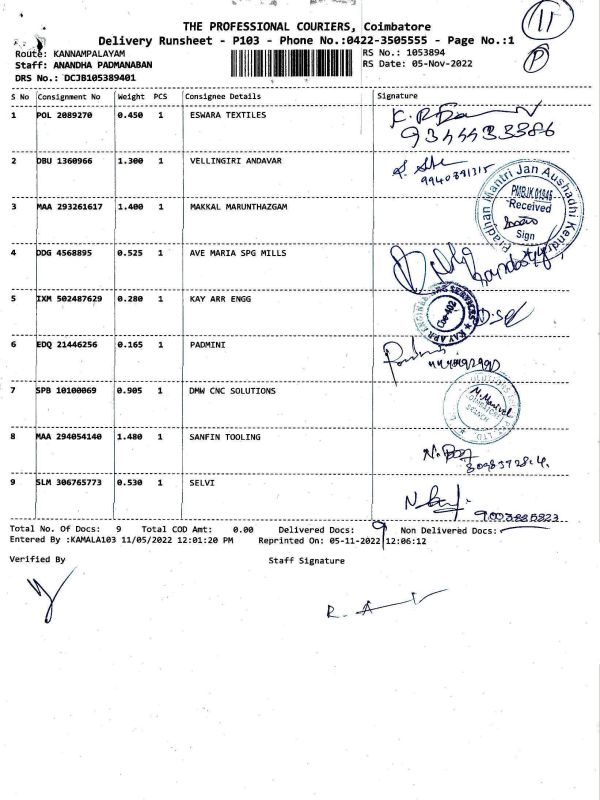 11
P
THE PROFESSIONAL COURIERS, Coimbatore
Delivery Runsheet - P103 - Phone No.:0422-3505555 - Page No.:1
Route: KANNAMPALAYAM
RS No.: 1053894
Staff: ANANDHA PADMANABAN
RS Date: 05-Nov-2022
DRS No.: DCJB105389401
S No Consignment No Weight PCS Consignee Details Signature
1 POL 2089270 0.450 1 ESWARA TEXTILES
9344433386
2 DBU 1360966 1.300 1 VELLINGIRI ANDAVAR
9940391315
3 MAA 293261617 1.400 1 MAKKAL MARUNTHAZGAM
Pradhan Mantri Jan Aushadhi Kendra
PMBJK 01846
Received
Sign
4 DDG 4568895 0.525 1 AVE MARIA SPG MILLS
5 IXM 502487629 0.280 1 KAY ARR ENGG
KAY ARR ENGINEERING SERVICES
Coe-402
6 EDQ 21446256 0.165 1 PADMINI
7 SPB 10100069 0.905 1 DMW CNC SOLUTIONS
8 MAA 294054140 1.480 1 SANFIN TOOLING
9 SLM 306765773 0.530 1 SELVI
9003885823
Total No. Of Docs: 9 Total COD Amt: 0.00 Delivered Docs: 9 Non Delivered Docs:
Entered By :KAMALA103 11/05/2022 12:01:20 PM Reprinted On: 05-11-2022 12:06:12
Verified By Staff Signature